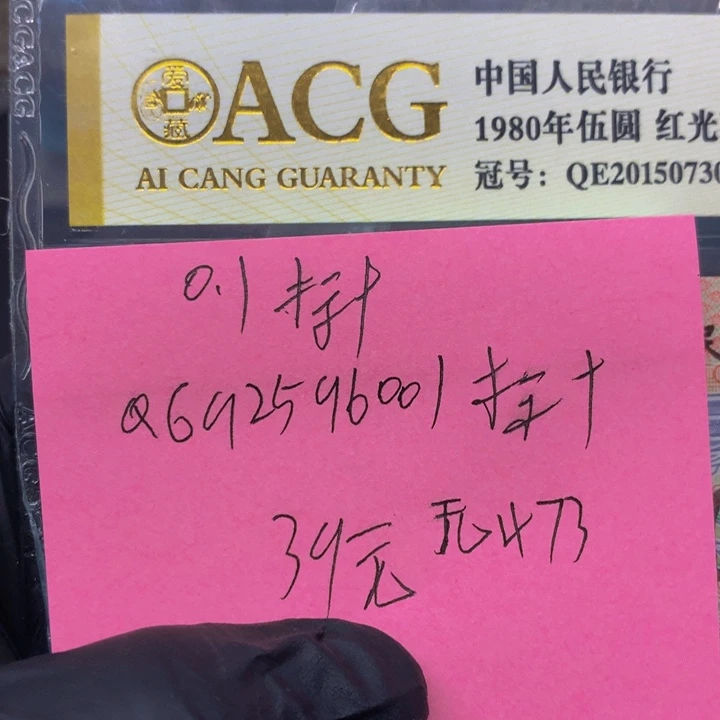 CGACG
ACG
AI CANG GUARANTY
中国人民银行
1980年伍圆 红光
冠号：QE2015073
0.1 标十
Q692596001 标十
39元 无473